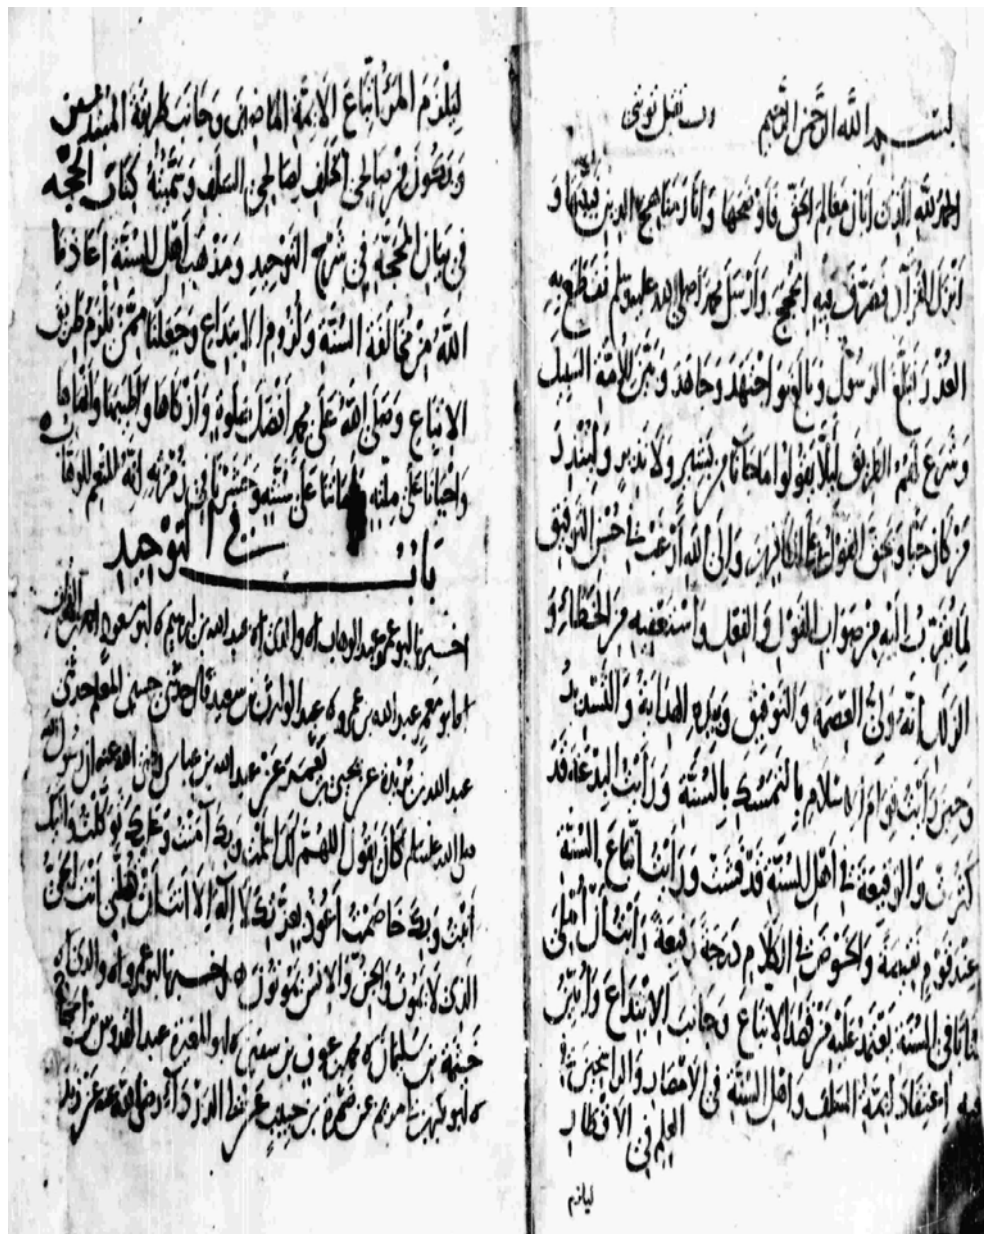 بسم الله الرحمن الرحيم
الحمد لله الذي أبان معالم الحق فأوضحها وأنار مناهج الدين فبينها و
أنزل القرآن فصرف فيه الحجج وأرسل محمدا صلى الله عليه وسلم فقطع به
العذر فبلغ الرسول وبالغ واجتهد وجاهد وبين للأمة السبيل
وشرع لهم الطريق لئلا يقولوا ما جاءنا من بشير ولا نذير ولينذر
من كان حيا ويحق القول على الكافرين وإلى الله أرغب في حسن التوفيق
لما يقرب إليه من صواب القول والفعل وأستعفيه من الخطأ و
الزلل إنه ولي العصمة والتوفيق وبيده الهداية والتسديد
وحين رأيت قوام الإسلام بالتمسك بالسنة ورأيت البدعة قد
كثرت والوقيعة في أهل السنة قد فشت ورأيت اتباع السنة
عند قوم نقيصة والخوض في الكلام درجة رفيعة رأيت أن أملي
كتابا في السنة يعتمد عليه من قصد الاتباع وجانب الابتداع وأبين
فيه اعتقاد أئمة السلف وأهل السنة في الأمصار والراسخين في
العلم في الأقطار
ليلزم
ليلزم المرء اتباع الأئمة الماضين وجانب طريقة المبتدعين
ويكون من صالحي الخلف لصالحي السلف وسميته كتاب الحجة
في بيان المحجة في شرح التوحيد ومذهب أهل السنة أعاذنا
الله من مخالفة السنة ولزوم الابتداع وجعلنا ممن يلزم طريق
الاتباع وصلى الله على محمد أفضل صلوة وأزكاها وأطيبها وأنماها
وأحيانا على ملته وأماتنا على سنته وحشرنا في زمرته إنه المنعم الوهاب
باب في التوحيد
أخبرنا أبو عمرو عبد الوهاب انا والدي انا عبد الله بن إبراهيم
انا أبو معمر عبد الله بن عمرو نا عبد الوارث بن سعيد قال حدثني حسين المعلم حدثني
عبد الله بن بريدة عن يحيى بن يعمر عن عبد الله بن عباس رضي الله عنه أن رسول الله
صلى الله عليه وسلم كان يقول اللهم لك أسلمت وبك آمنت وعليك توكلت وإليك
أنبت وبك خاصمت أعوذ بعزتك لا إله إلا أنت أن تضلني أنت الحي
الذي لا يموت والجن والإنس يموتون وأخبرنا أبو عمرو انا والدي انا
خيثمة بن سليمان نا محمد بن عوف بن سفين نا أبو المغيرة عبد القدوس بن الحجاج
نا أبو بكر بن أبي مريم عن ضمرة بن حبيب عن أبي الدرداء رضي الله عنه عن زيد